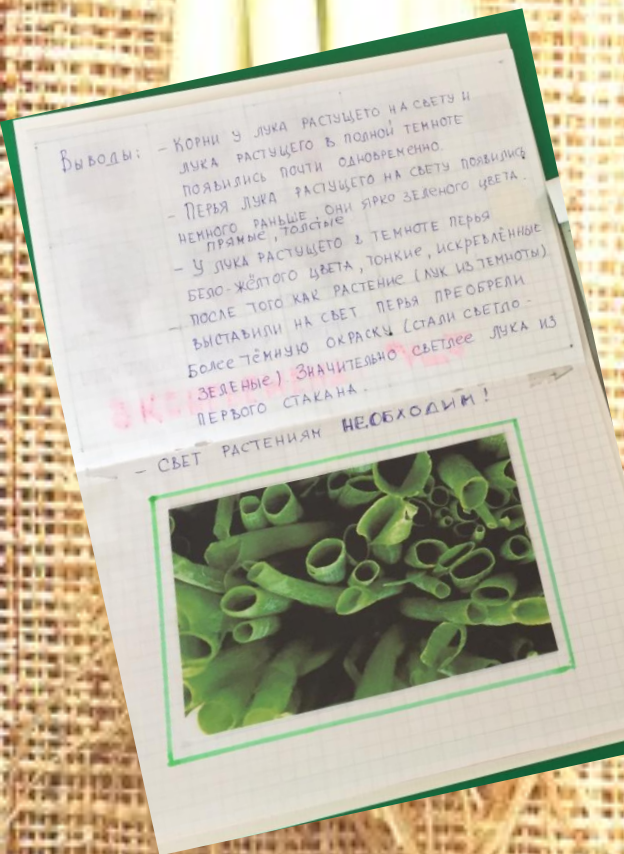 Выводы: - Корни у лука растущего на свету и
лука растущего в полной темноте
появились почти одновременно.
- Перья лука растущего на свету появились
немного раньше, они ярко зеленого цвета.
прямые, толстые
- У лука растущего в темноте перья
бело-жёлтого цвета, тонкие, искревлённые
- после того как растение (лук из темноты)
выставили на свет перья преобрели
более тёмную окраску (стали светло-
зеленые) значительно светлее лука из
первого стакана.
- Свет растениям необходим!